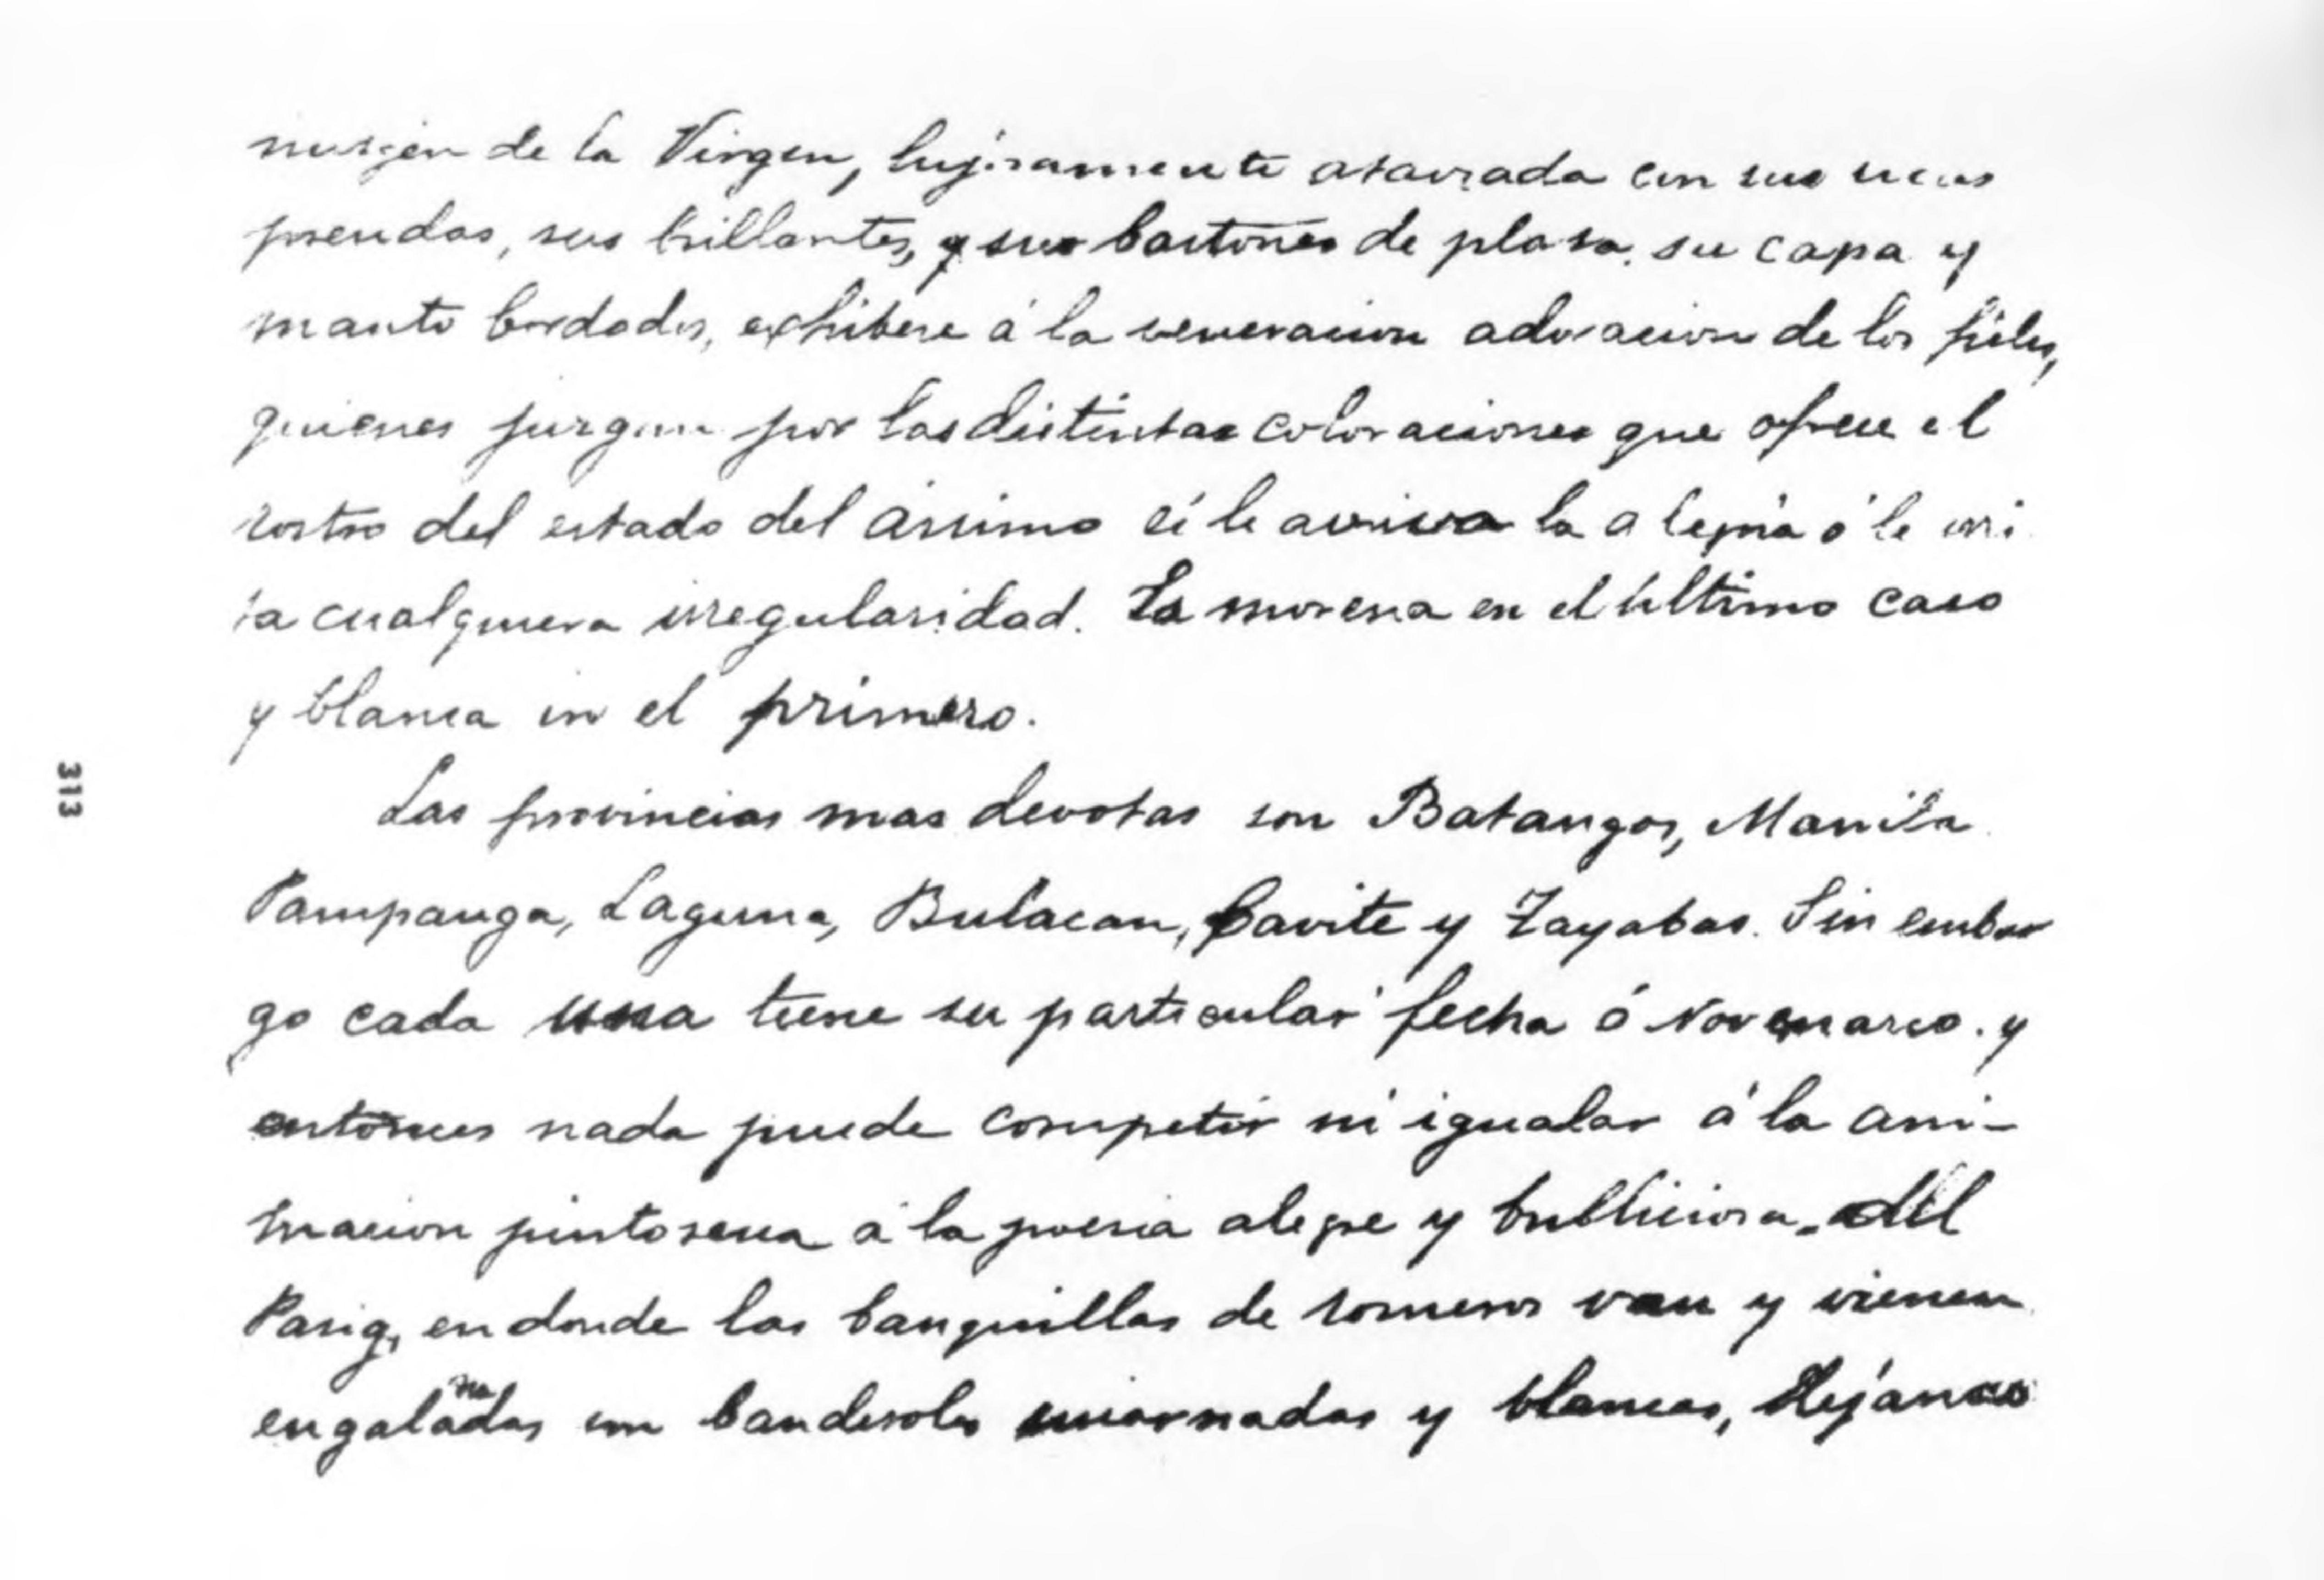 de la Virgen, lujosamente ataviada con sus ricas
prendas, sus brillantes, y sus bastones de plata, su capa y
manto bordados, exhibese á la veneracion adoracion de los fieles,
quienes juzgan por las distintas coloraciones que ofrece el
rostro del estado del ánimo si le aviva la alegria ó le irri
ta cualquiera irregularidad. La morena en el último caso
y blanca en el primero.
Las provincias mas devotas son Batangas, Manila
Pampanga, Laguna, Bulacan, Cavite y Tayabas. Sin embar
go cada una tiene su particular fecha ó Novenario. y
entonces nada puede competir ni igualar á la ani-
macion pintoresca á la poesia alegre y bulliciosa del
Pasig, en donde las banquillas de romeros van y vienen
engalanadas con banderolas encarnadas y blancas,
313